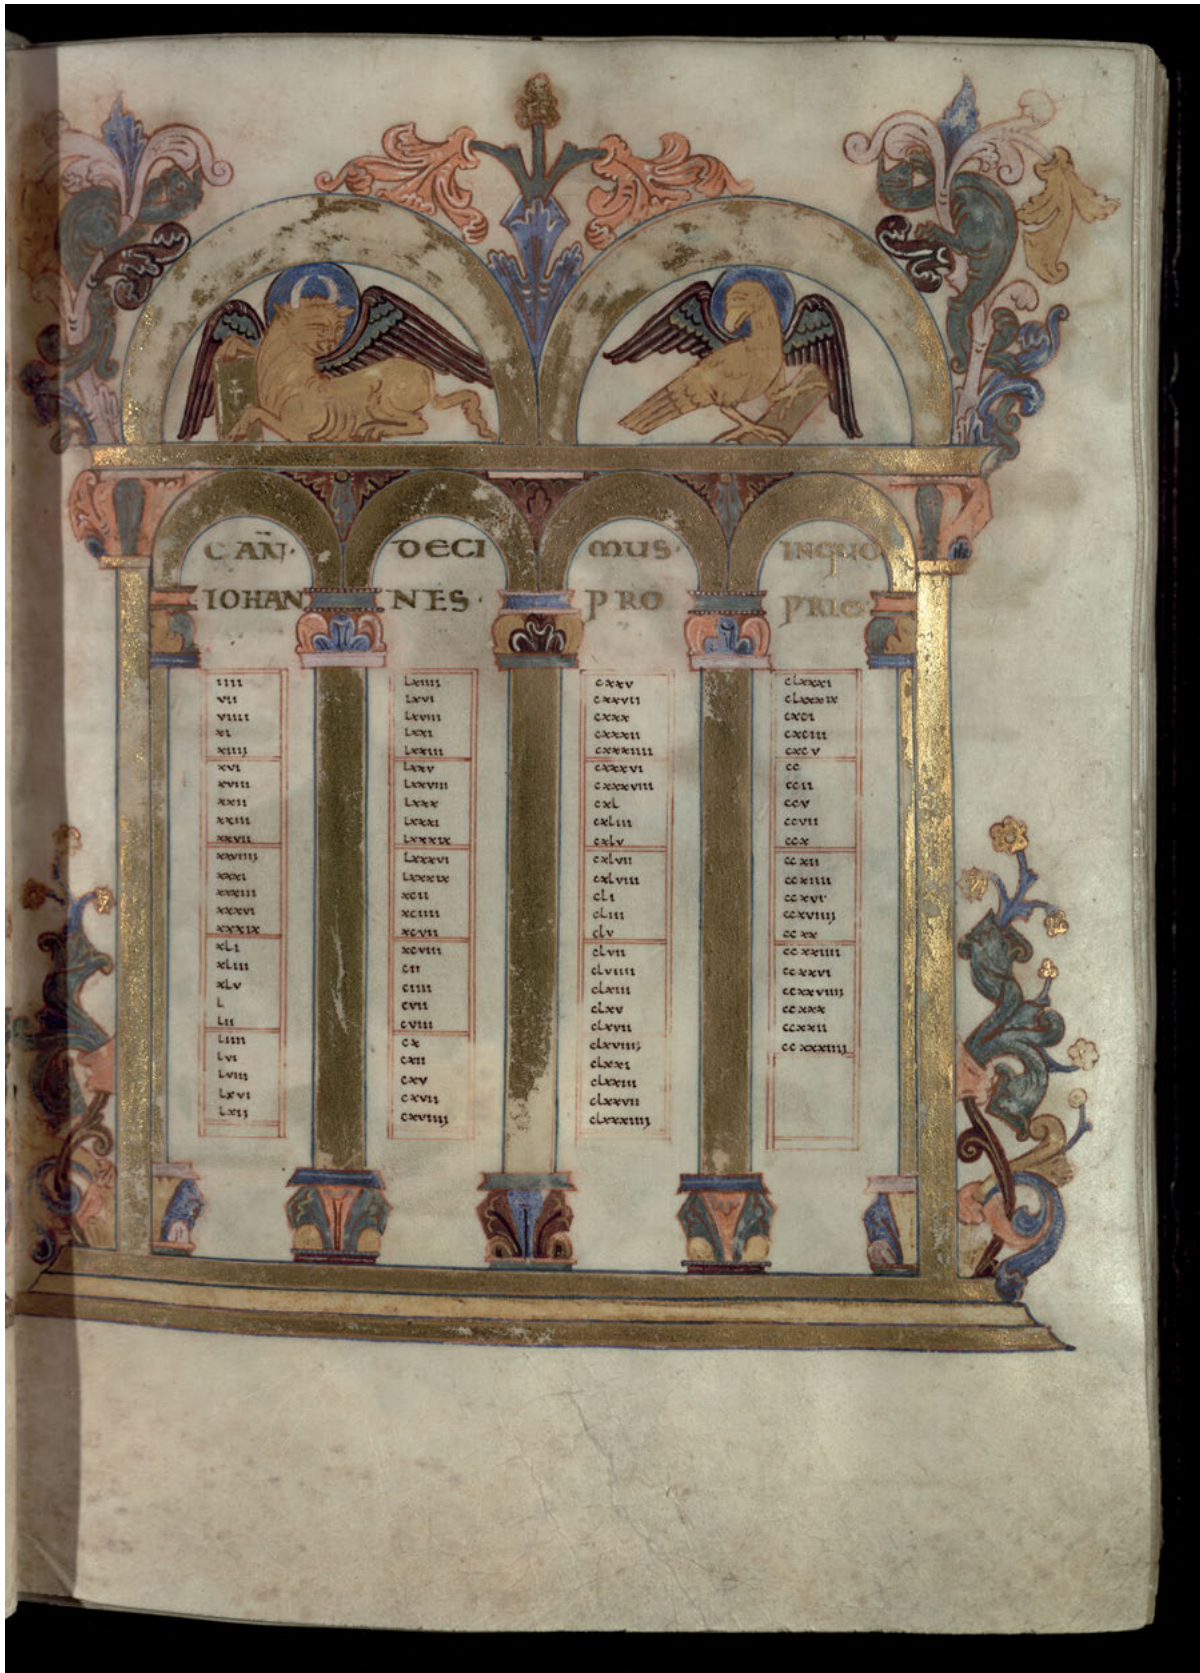 CAN̄· DECI MUS· INQUO
IOHAN NES· PRO PRIE·
iiii
vii
viiii
xi
xiiii
xvi
xviii
xxii
xxiiii
xxvii
xxviiii
xxxi
xxxiii
xxxvi
xxxix
xli
xliii
xlv
l
lii
liiii
lvi
lviii
lxvi
lxii
lxiiii
lxvi
lxviii
lxxi
lxxiii
lxxv
lxxviii
lxxx
lxxxi
lxxxix
lxxxvi
lxxxix
xcii
xciiii
xcvii
xcviii
cii
ciiii
cvii
cviii
cx
cxii
cxv
cxvii
cxviiii
cxxv
cxxvii
cxxx
cxxxii
cxxxiiii
cxxxvi
cxxxviii
cxl
cxliii
cxlv
cxlvii
cxlviii
cli
cliii
clv
clvii
clviiii
clxiii
clxv
clxvii
clxviiii
clxxi
clxxiii
clxxvii
clxxxiiii
clxxxi
clxxxix
cxci
cxciii
cxcv
cc
ccii
ccv
ccvii
ccx
ccxii
ccxiiii
ccxvi
ccxviiii
ccxx
ccxxiiii
ccxxvi
ccxxviiii
ccxxx
ccxxii
ccxxxiiii